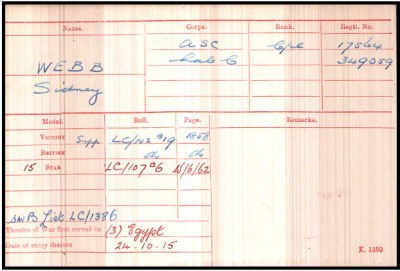 Name. Corps. Rank. Regtl. No.
WEBB ASC Cpl 17564
Sidney Lab C 349059
Medal. Roll. Page. Remarks.
Victory Supp LC/102 B19 1858
British do do
15 Star LC/107 C6 15/6/62
SWB List LC/1386
Theatre of War first served in (3) Egypt
Date of entry therein 24.10.15 K. 1380